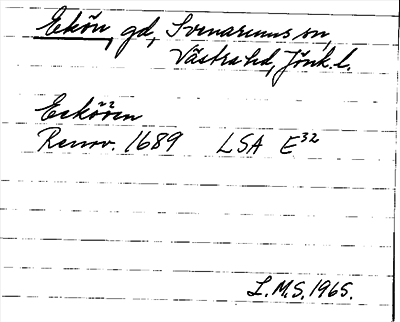 Ekön, gd, Svenarums sn,
Västra hd, Jönk. l.
Eeköön
Renov. 1689 LSA E³²
L.M.S. 1965.